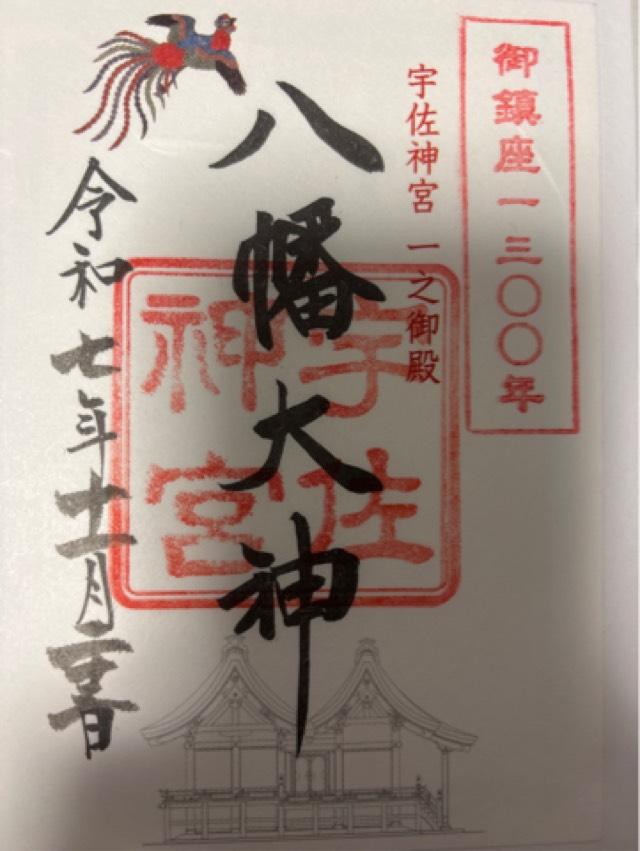 御鎮座一三〇〇年
宇佐神宮 一之御殿
八幡大神
宇佐
神宮
令和七年十一月日